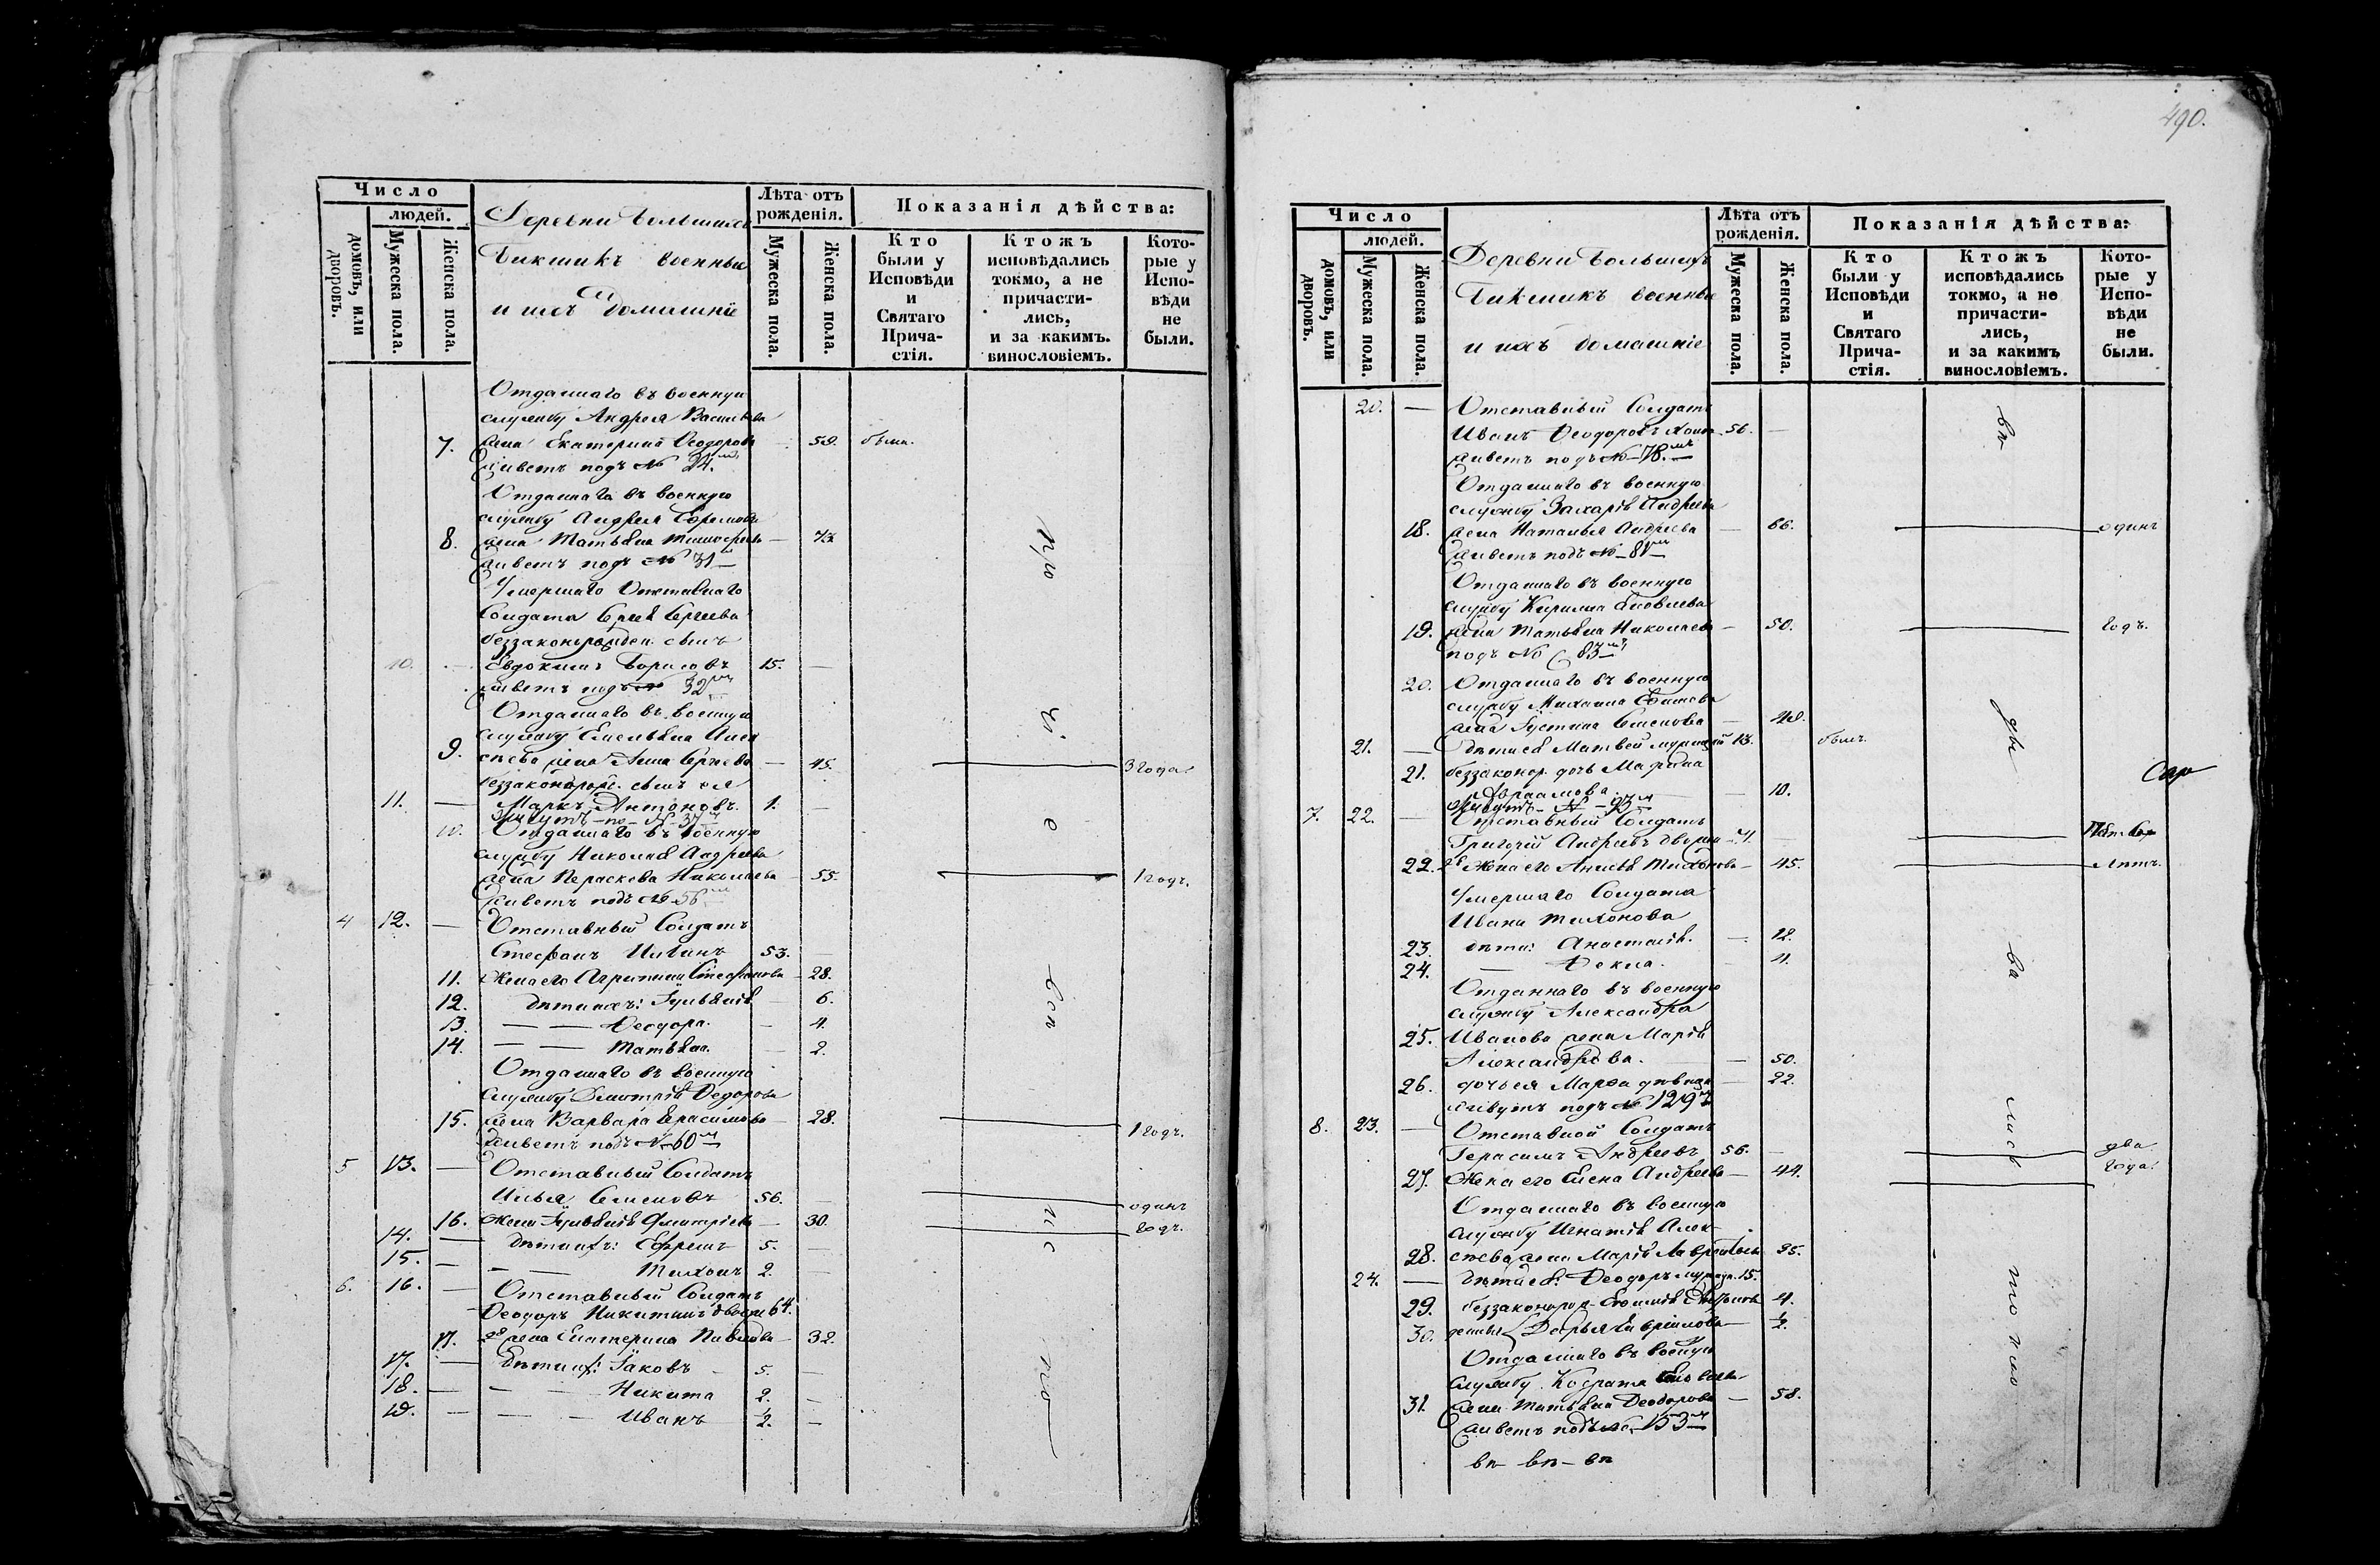 Число
людей.
домовъ, или дворовъ.
Мужеска пола.
Женска пола.
Деревни Большихъ
Бикшикъ военные
и ихъ домашніе
Лѣта отъ
рожденія.
Мужеска пола.
Женска пола.
Показанія дѣйства:
Кто
были у
Исповѣди
и
Святаго
Прича-
стія.
Ктожъ
исповѣдались
токмо, а не
причасти-
лись,
и за какимъ.
винословіемъ.
Кото-
рые у
Испо-
вѣди
не
были.
Отданнаго въ военную
службу Андрея Васильева
7. жена Екатерина Ѳеодорова 59. была.
живетъ подъ № 24.
Отданнаго въ военную
службу Андрея Ефремова
8. жена Татьяна Тимоѳеева — 73.
живетъ подъ № 31
Умершаго Отставнаго
Солдата Сергѣева
беззаконорожден. сынъ
10. — Евдокимъ Борисовъ 15. —
живетъ подъ № 32
Отданнаго въ военную
службу Емельяна Алек
9. сѣева жена Анна Сергѣева — 45. 3 года.
беззаконорож. сынъ ея
11. — Маркъ Антоновъ. 1. —
живутъ по № 37
10. Отданнаго въ военную
службу Николая Андреева
жена Параскева Николаева — 55. 1 годъ.
живетъ подъ № 56
4 12. — Отставный Солдатъ
Стефанъ 53. —
11. Жена его Агрипина Стефанова — 28.
12. дѣти ихъ: Іульянія — 6.
13. — — Ѳеодора. — 4.
14. — — Татьяна. — 2.
Отданнаго въ военную
службу Дмитрія Ѳедорова
15. жена Варвара Герасимова — 28. 1 годъ.
живетъ подъ № 60
5 13. — Отставный Солдатъ
Илья Семеновъ 56. — одинъ
16. жена Іульянія Дмитріева — 30. годъ.
14. — дѣти ихъ: Ефремъ 5. —
15. — — Тихонъ 2. —
6. 16. — Отставный Солдатъ
Ѳеодоръ Никитинъ 64.
17. 2я жена Екатерина Павлова — 32.
17. — дѣти ихъ: Іаковъ 5. —
18. — — Никита 2. —
19. — — — Иванъ ½. —
490.
Число
людей.
домовъ, или дворовъ.
Мужеска пола.
Женска пола.
Деревни Большихъ
Бикшикъ военные
и ихъ домашніе
Лѣта отъ
рожденія.
Мужеска пола.
Женска пола.
Показанія дѣйства:
Кто
были у
Исповѣди
и
Святаго
Прича-
стія.
Ктожъ
исповѣдались
токмо, а не
причасти-
лись,
и за какимъ
винословіемъ.
Кото-
рые у
Испо-
вѣди
не
были.
20. — Отставный Солдатъ
Иванъ Ѳеодоровъ 56. —
живетъ подъ № 78.
Отданнаго въ военную
службу Захарія Андреева
18. жена Наталья Андреева — 66. одинъ
живетъ подъ № 81
Отданнаго въ военную
службу Кирилла Яковлева
19. жена Татьяна Николаева — 50. годъ.
подъ № 83
20. Отданнаго въ военную
службу Михаила Ефимова
жена Іустина Семенова — 49.
21. — дѣти ея Матвей 13. былъ.
21. беззаконор. дочь Марина
Авраамова — 10.
живутъ № 93
7. 22. — Отставный Солдатъ
Григорій Андреевъ
22. Жена его Анисія Тихонова — 45. лѣтъ.
Умершаго Солдата
Ивана Тихонова
23. дѣти: Анастасія. — 12.
24. — Ѳекла. — 11.
Отданнаго въ военную
службу Александра
25. Иванова жена Марія
Александрова. — 50.
26. дочь ея Марѳа дѣвица — 22.
живутъ подъ № 129
8. 23. — Отставной Солдатъ
Герасимъ Андреевъ 56. — два
27. Жена его Елена Андреева — 44. года.
Отданнаго въ военную
службу Игнатія Алек-
28. сѣева жена Марія Лаврентьева 35.
24. — дѣти ея: Ѳеодоръ 15.
29. беззаконорож. 4.
30. Дарья — ½.
Отданнаго въ военную
службу Яковлева
31. жена Татьяна Ѳеодорова — 58.
живетъ подъ № 153